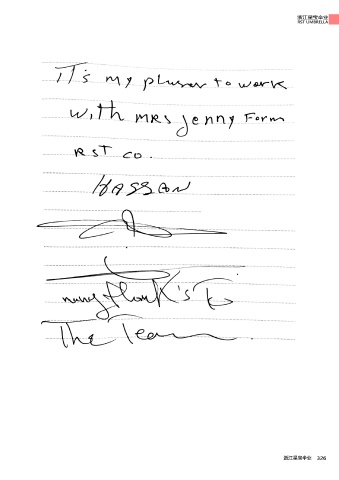 浙江星宝伞业
RST UMBRELLA
IT's my pluser to work
with MRS Jenny Form
RST co.
HASSON
many thank's To
The Team.
浙江星宝伞业 326